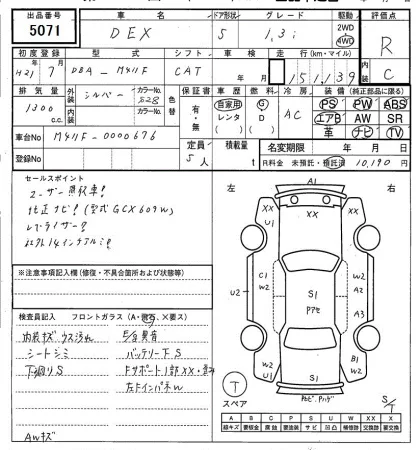 出品番号 車名 ドア形状 グレード 駆動 評価点
5071 DEX 5 1.3i 2WD 4WD R
初度登録 型式 シフト 車検 走行(km・マイル) 内装 C
H21年7月 DBA-M411F CAT 年 月 151,139
排気量 外装色 シルバー カラーNo. S28 色替 保証書 車歴 燃料 冷房 装備(純正部品に限る)
1300 c.c. 内装色 カラーNo. 有・無 自家用 レンタ G D AC PS PW ABS
エアB AW SR
革 ナビ TV
車台No M411F-0000676 定員 5人 積載量 t 名変期限 年 月 日
登録No R料金 未預託・預託済 10,190円
セールスポイント
ユーザー買取車!
純正ナビ!(型式GCX609W)
社外14インチアルミ!
※注意事項記入欄(修復・不具合箇所および状態等)
検査員記入 フロントガラス(A・飛石、×要ス)
内装キズ ウスヨゴレ
シートシミ バッテリー下S
下廻りS
AWキズ
左 右
A1
XX XX XX
U1
C1 W2
U2 S1 W2 A2
W2 A3
W2 B1 W2
U1
S1
T
スペア
S/T
A B C P S U W X XX ×
線キズ 要板金 腐蝕 要塗装 サビ 凹凸 補修跡 要交換 交換跡